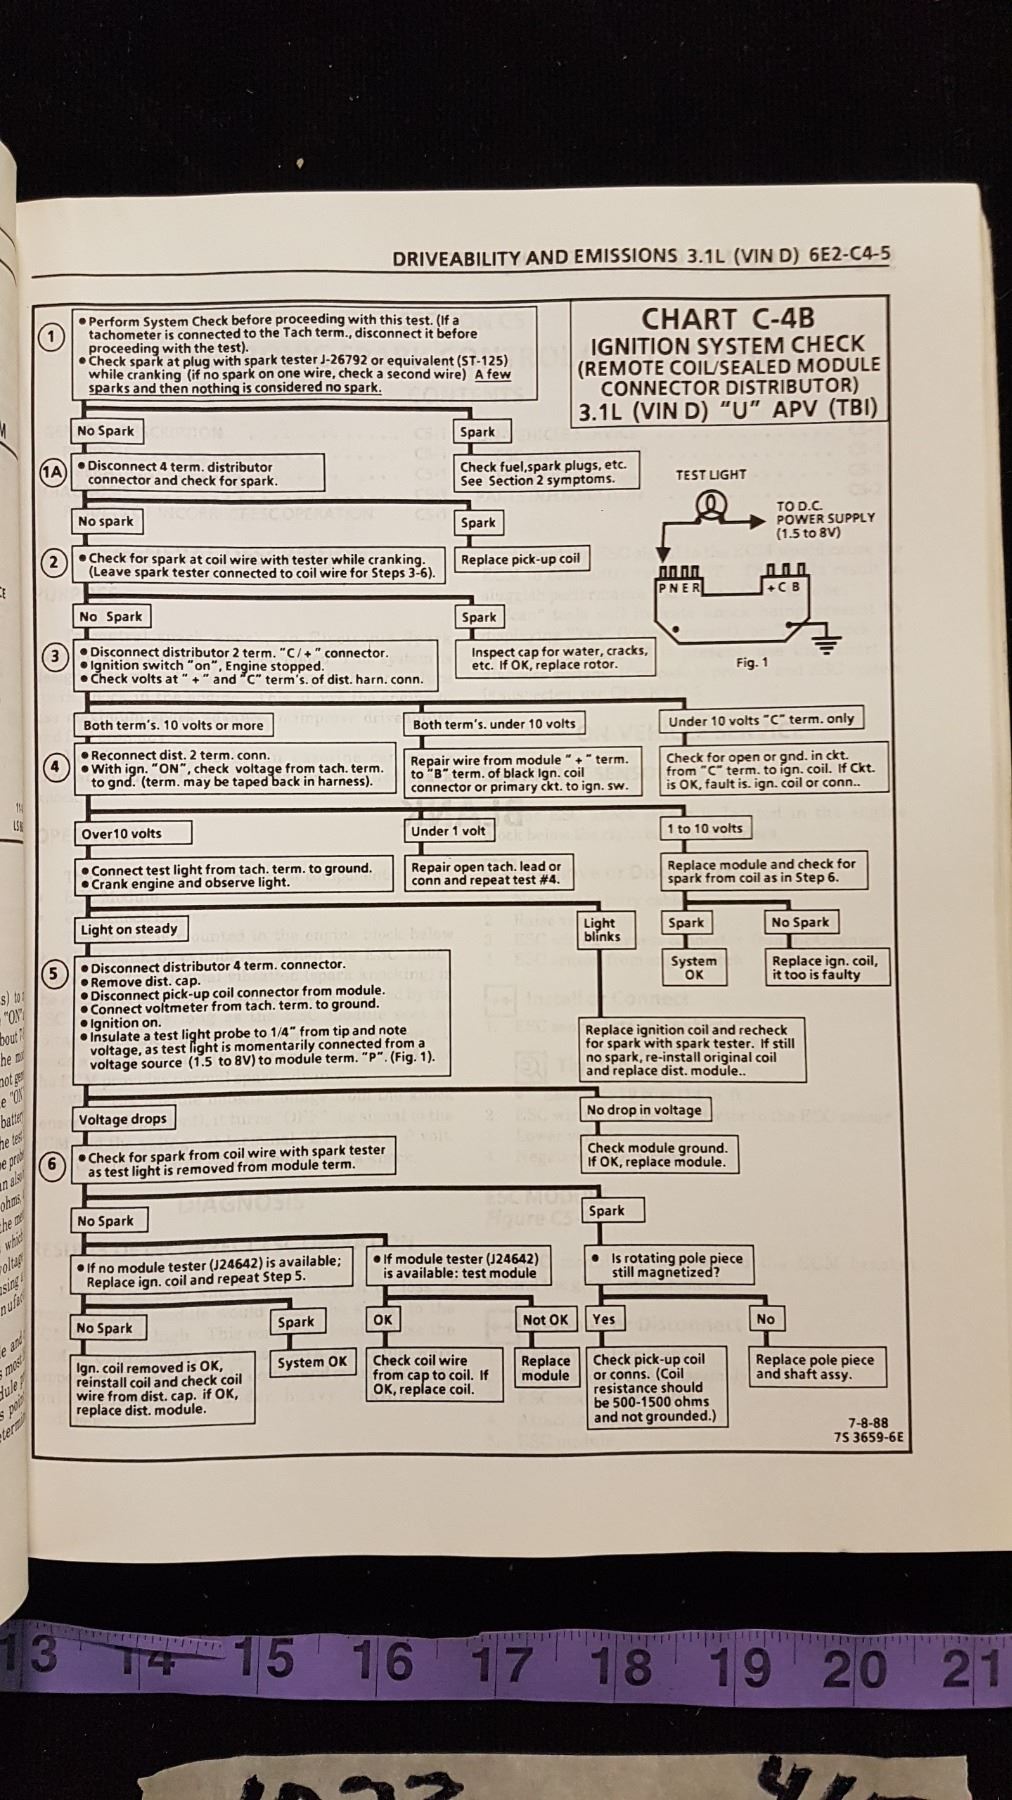 DRIVEABILITY AND EMISSIONS 3.1L (VIN D) 6E2-C4-5
CHART C-4B
IGNITION SYSTEM CHECK
(REMOTE COIL/SEALED MODULE
CONNECTOR DISTRIBUTOR)
3.1L (VIN D) "U" APV (TBI)
1
• Perform System Check before proceeding with this test. (If a
tachometer is connected to the Tach term., disconnect it before
proceeding with the test).
• Check spark at plug with spark tester J-26792 or equivalent (ST-125)
while cranking (if no spark on one wire, check a second wire) A few
sparks and then nothing is considered no spark.
No Spark
Spark
1A
• Disconnect 4 term. distributor
connector and check for spark.
Check fuel,spark plugs, etc.
See Section 2 symptoms.
No spark
Spark
2
• Check for spark at coil wire with tester while cranking.
(Leave spark tester connected to coil wire for Steps 3-6).
Replace pick-up coil
TEST LIGHT
TO D.C.
POWER SUPPLY
(1.5 to 8V)
P N E R
+ C B
Fig. 1
No Spark
Spark
3
• Disconnect distributor 2 term. "C/+" connector.
• Ignition switch "on", Engine stopped.
• Check volts at "+" and "C" term's. of dist. harn. conn.
Inspect cap for water, cracks,
etc. If OK, replace rotor.
Both term's. 10 volts or more
Both term's. under 10 volts
Under 10 volts "C" term. only
4
• Reconnect dist. 2 term. conn.
• With ign. "ON", check voltage from tach. term.
to gnd. (term. may be taped back in harness).
Repair wire from module "+" term.
to "B" term. of black Ign. coil
connector or primary ckt. to ign. sw.
Check for open or gnd. in ckt.
from "C" term. to ign. coil. If Ckt.
is OK, fault is. ign. coil or conn..
Over10 volts
Under 1 volt
1 to 10 volts
• Connect test light from tach. term. to ground.
• Crank engine and observe light.
Repair open tach. lead or
conn and repeat test #4.
Replace module and check for
spark from coil as in Step 6.
Light on steady
Light
blinks
Spark
No Spark
System
OK
Replace ign. coil,
it too is faulty
5
• Disconnect distributor 4 term. connector.
• Remove dist. cap.
• Disconnect pick-up coil connector from module.
• Connect voltmeter from tach. term. to ground.
• Ignition on.
• Insulate a test light probe to 1/4" from tip and note
voltage, as test light is momentarily connected from a
voltage source (1.5 to 8V) to module term. "P". (Fig. 1).
Replace ignition coil and recheck
for spark with spark tester. If still
no spark, re-install original coil
and replace dist. module..
Voltage drops
No drop in voltage
6
• Check for spark from coil wire with spark tester
as test light is removed from module term.
Check module ground.
If OK, replace module.
No Spark
Spark
• If no module tester (J24642) is available;
Replace ign. coil and repeat Step 5.
• If module tester (J24642)
is available: test module
• Is rotating pole piece
still magnetized?
No Spark
Spark
OK
Not OK
Yes
No
Ign. coil removed is OK,
reinstall coil and check coil
wire from dist. cap. if OK,
replace dist. module.
System OK
Check coil wire
from cap to coil. If
OK, replace coil.
Replace
module
Check pick-up coil
or conns. (Coil
resistance should
be 500-1500 ohms
and not grounded.)
Replace pole piece
and shaft assy.
7-8-88
7S 3659-6E
13 14 15 16 17 18 19 20 21